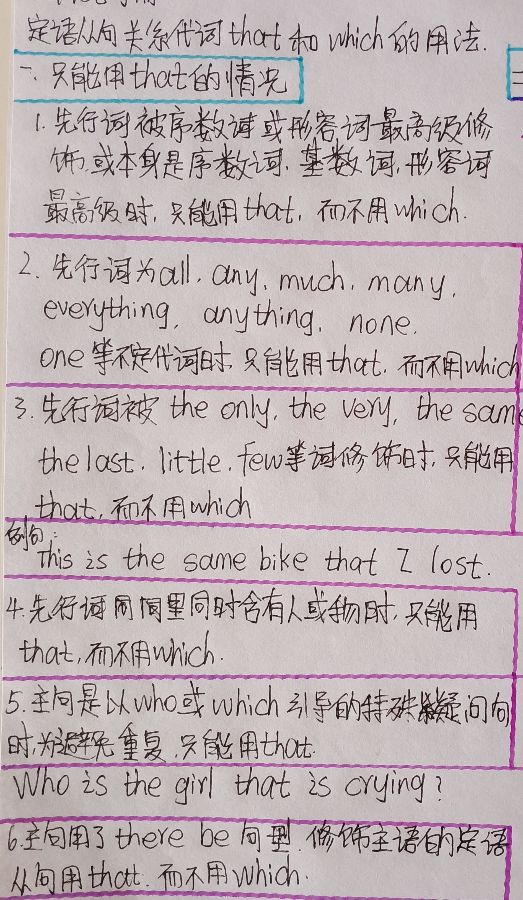 定语从句关系代词that和which的用法.
一、只能用that的情况
二
1. 先行词被序数词或形容词最高级修
饰,或本身是序数词、基数词,形容词
最高级时,只能用that,而不用which.
2. 先行词为all, any, much, many,
everything, anything, none,
one等不定代词时,只能用that,而不用which
3. 先行词被the only, the very, the same
the last, little, few等词修饰时,只能用
that,而不用which
例句:
This is the same bike that I lost.
4.先行词里同时含有人或物时,只能用
that,而不用which.
5.主句是以who或which引导的特殊疑问句
时,为避免重复,只能用that.
Who is the girl that is crying?
6.主句用了there be句型,修饰主语的定语
从句用that,而不用which.